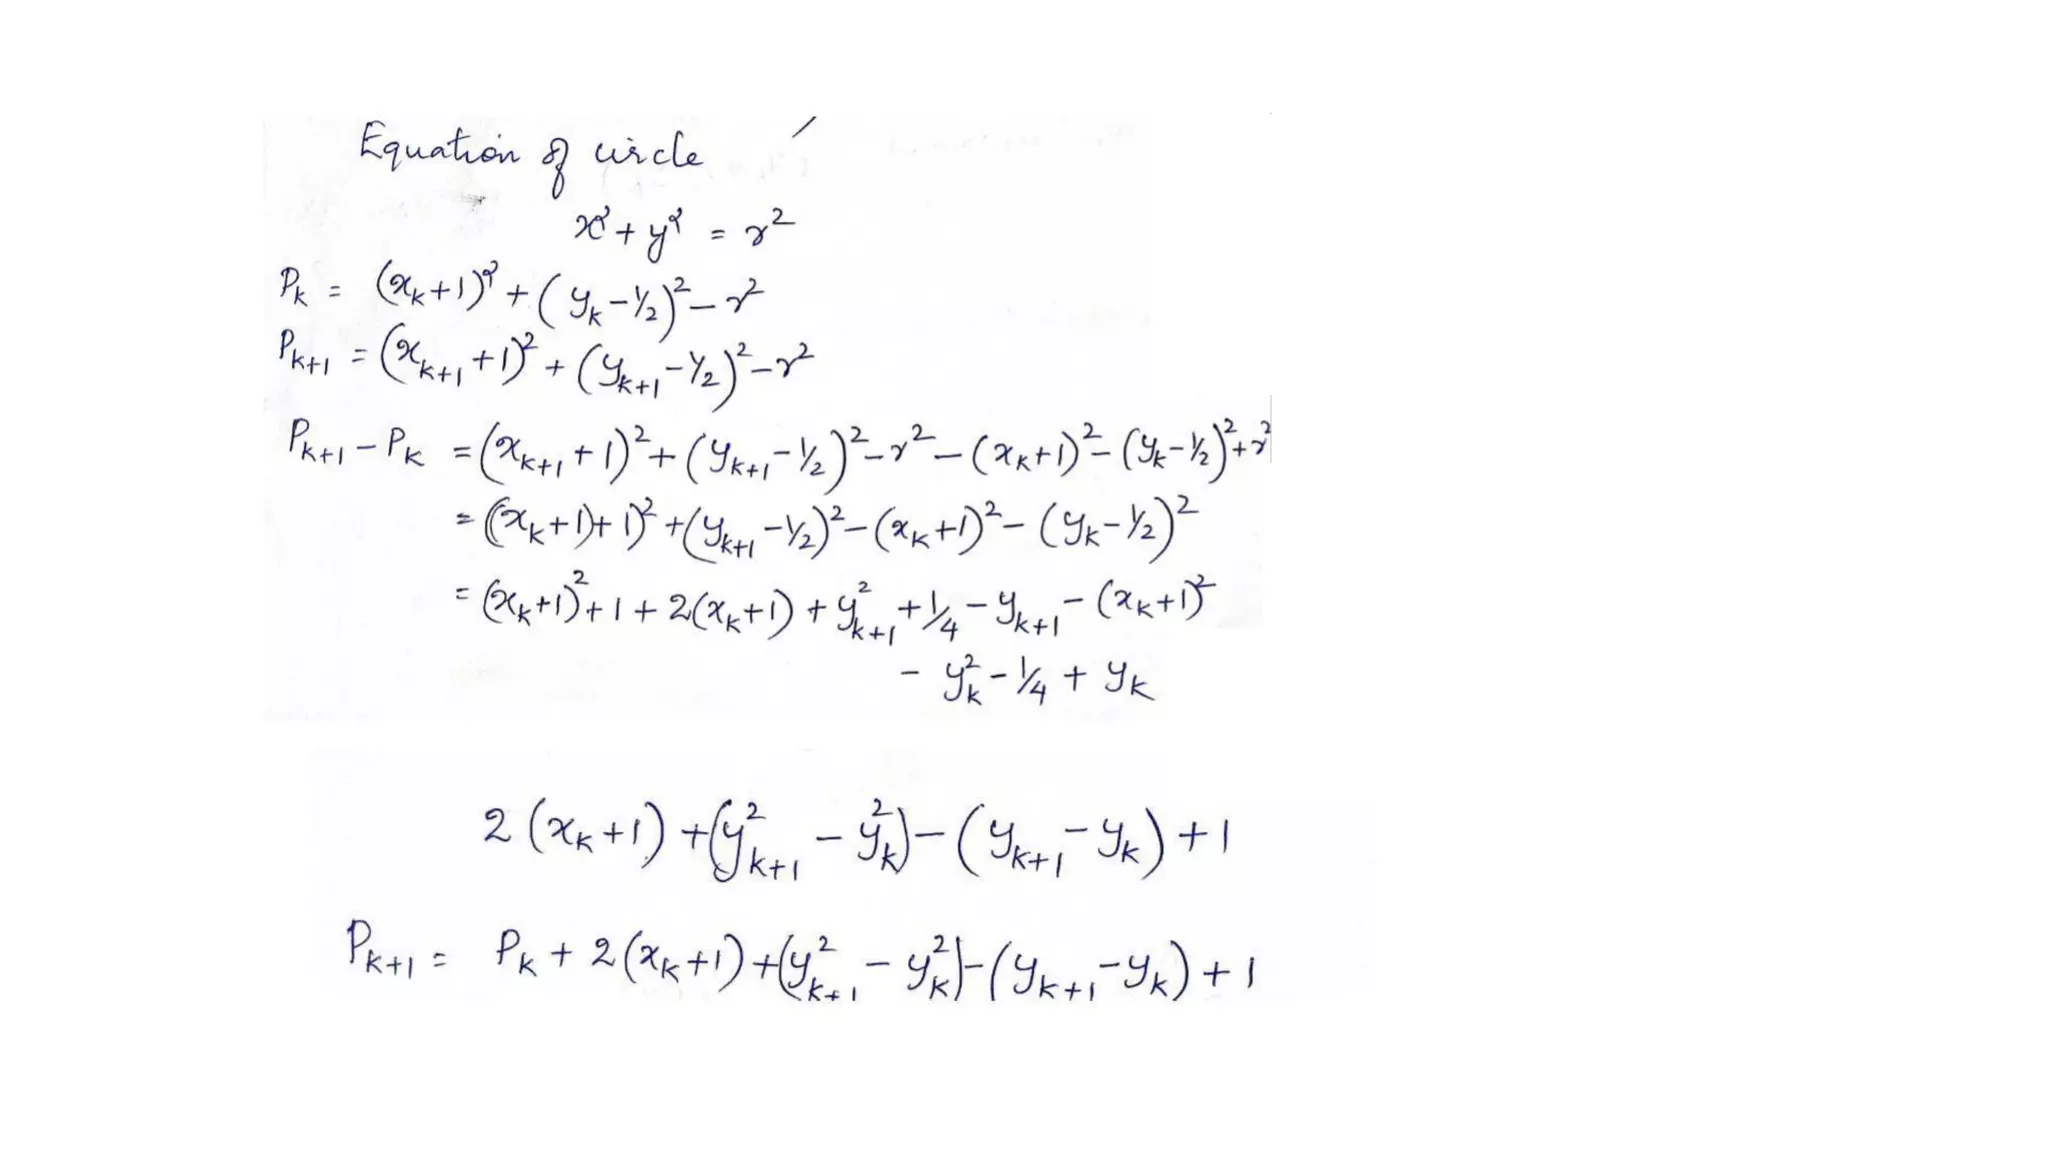 Equation of circle
x² + y² = r²
Pₖ = (xₖ+1)² + (yₖ-½)² - r²
Pₖ₊₁ = (xₖ₊₁+1)² + (yₖ₊₁-½)² - r²
Pₖ₊₁ - Pₖ = (xₖ₊₁+1)² + (yₖ₊₁-½)² - r² - (xₖ+1)² - (yₖ-½)² + r²
= ((xₖ+1)+1)² + (yₖ₊₁-½)² - (xₖ+1)² - (yₖ-½)²
= (xₖ+1)² + 1 + 2(xₖ+1) + y²ₖ₊₁ + ¼ - yₖ₊₁ - (xₖ+1)²
- y²ₖ - ¼ + yₖ
2(xₖ+1) + (y²ₖ₊₁ - y²ₖ) - (yₖ₊₁ - yₖ) + 1
Pₖ₊₁ = Pₖ + 2(xₖ+1) + (y²ₖ₊₁ - y²ₖ) - (yₖ₊₁ - yₖ) + 1